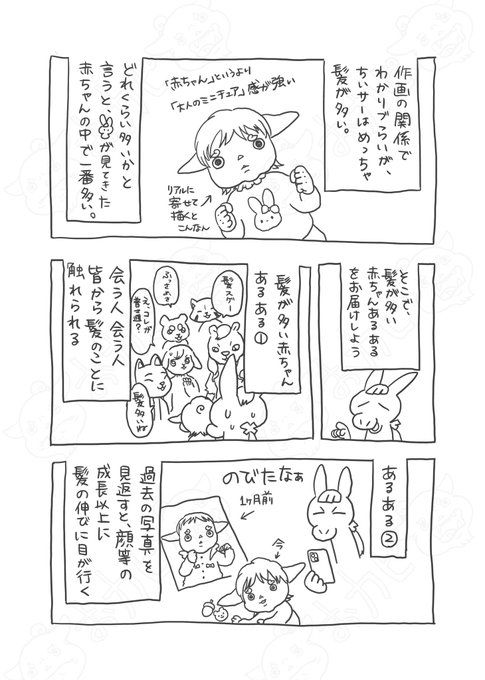 作画の関係で
わかりづらいが、
ちいサーはめっちゃ
髪が多い。
「赤ちゃん」というより
「大人のミニチュア」感が強い
リアルに
寄せて
描くと
こんなん
どれくらい多いかと
言うと、
が見てきた
赤ちゃんの中で一番多い。
そこで、
髪が多い
赤ちゃんあるある
をお届けしよう
髪が多い赤ちゃん
あるある①
髪スゲー
ふっさふさ
え、コレが
普通?
髪多いね
会う人会う人
皆から髪のことに
触れられる
あるある②
のびたなぁ
1ヶ月前
今
過去の写真を
見返すと、顔等の
成長以上に
髪の伸びに目が行く